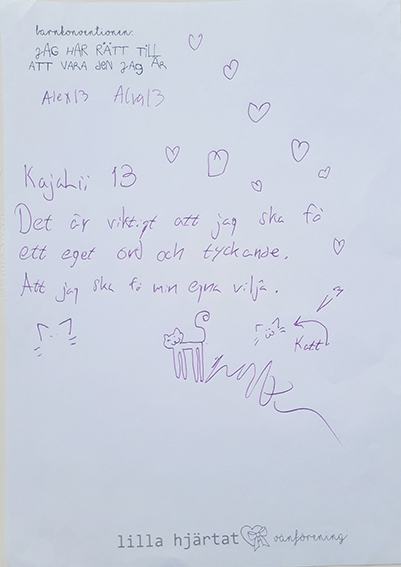 barnkonventionen:
JAG HAR RÄTT TILL
ATT VARA deN JAg ÄR
Alex13 Alva13
KajaLii 13
Det är viktigt att jag ska få
ett eget ord och tyckande.
Att jag ska få min egna vilja.
Katt
lilla hjärtat vänförening